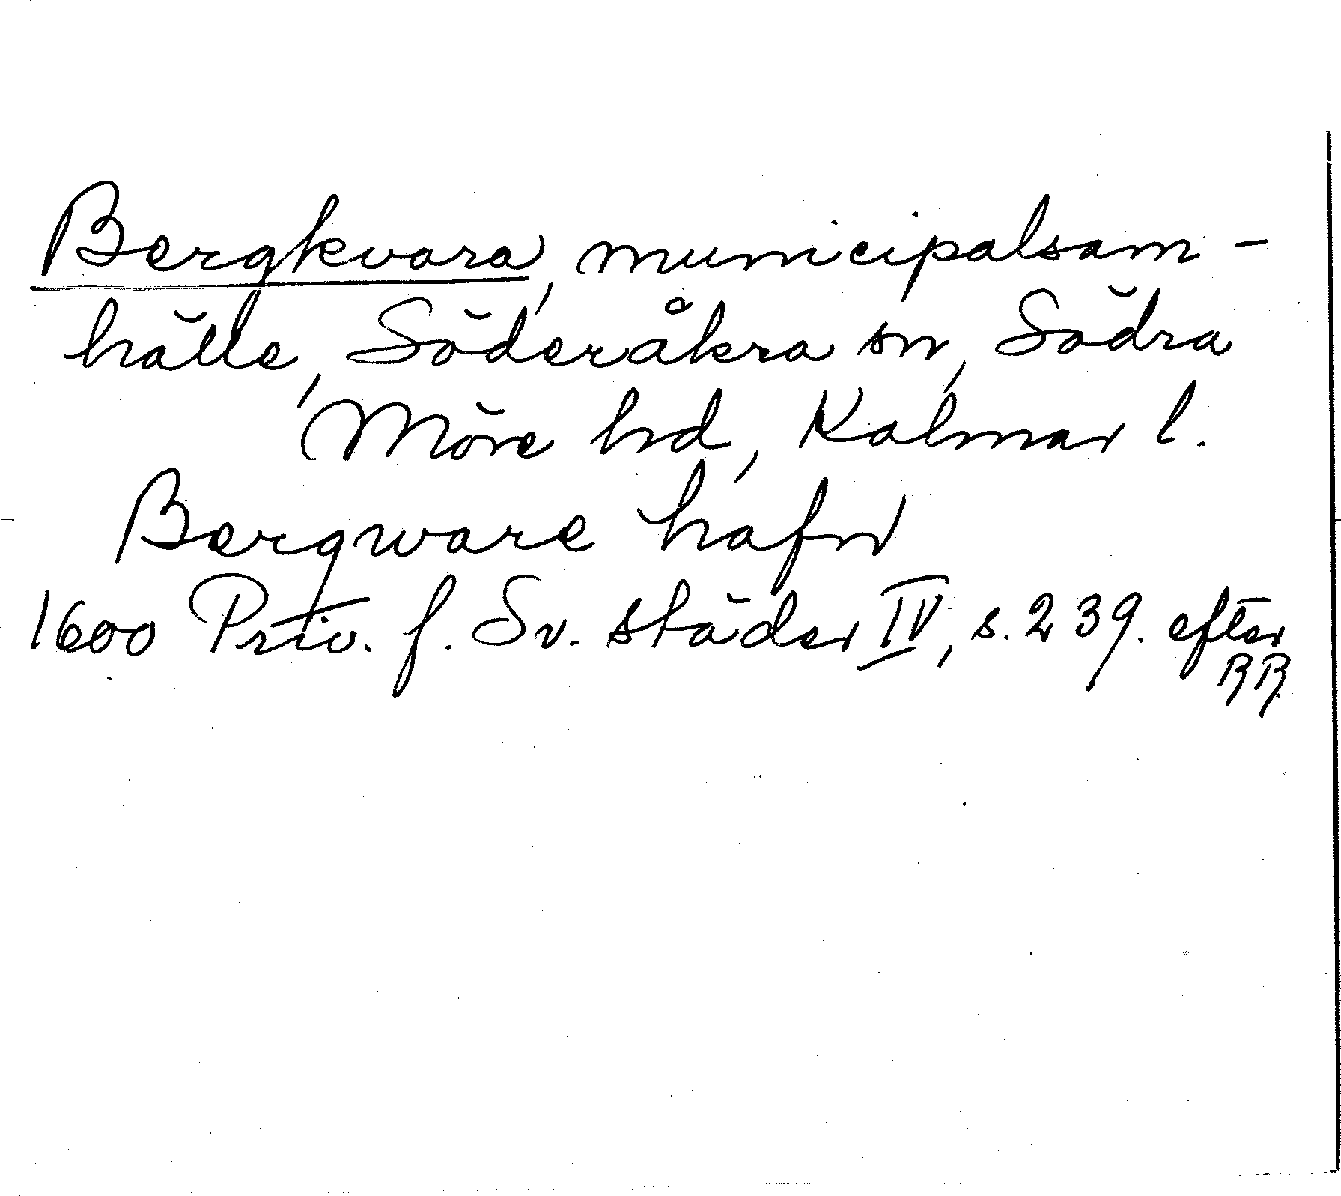 Bergkvara, municipalsam-
hälle, Söderåkra sn, Södra
Möre hd, Kalmar l.
Bergware hafn
1600 Priv. f. Sv. städer IV, s. 239. efter
RR